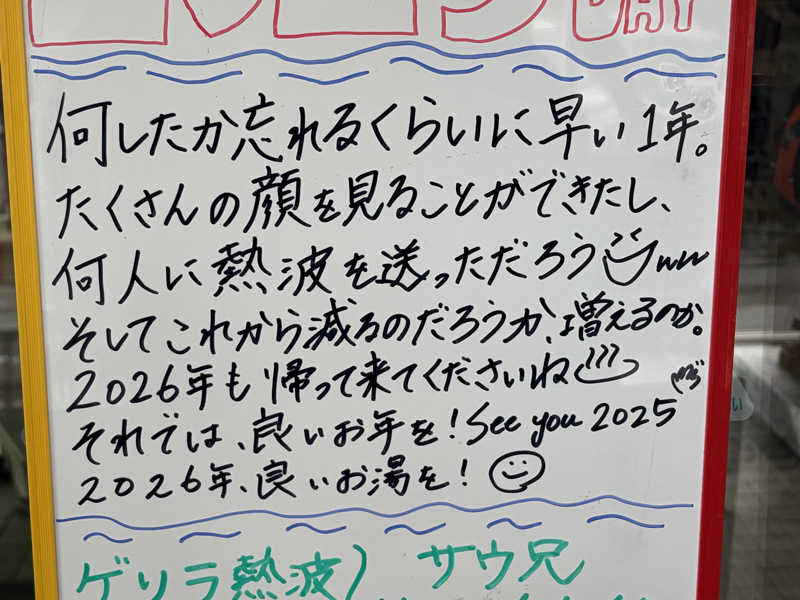 DAY
何したか忘れるくらいに早い1年。
たくさんの顔を見ることができたし、
何人に熱波を送っただろうww
そしてこれから減るのだろうか、増えるのか。
2026年も帰って来てくださいね
それでは、良いお年を!See you 2025
2026年、良いお湯を!
い
ゲリラ熱波 サウ兄